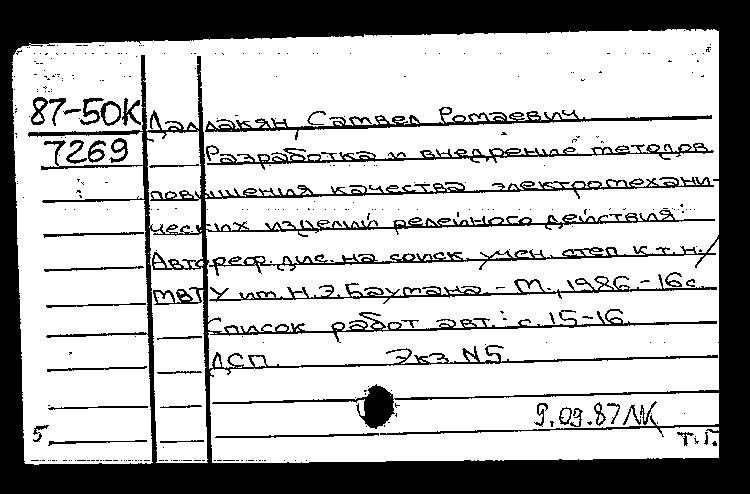 87-50К Даллакян, Самвел Ромаевич.
7269 Разработка и внедрение методов
повышения качества электромехани-
ческих изделий релейного действия:
Автореф. дис. на соиск. учен. степ. к.т.н./
МВТУ им. Н.Э. Баумана. - М., 1986 - 16 с.
Список работ авт.: с. 15-16.
ДСП. Экз. N5.
9.09.87
5 Т.Г.